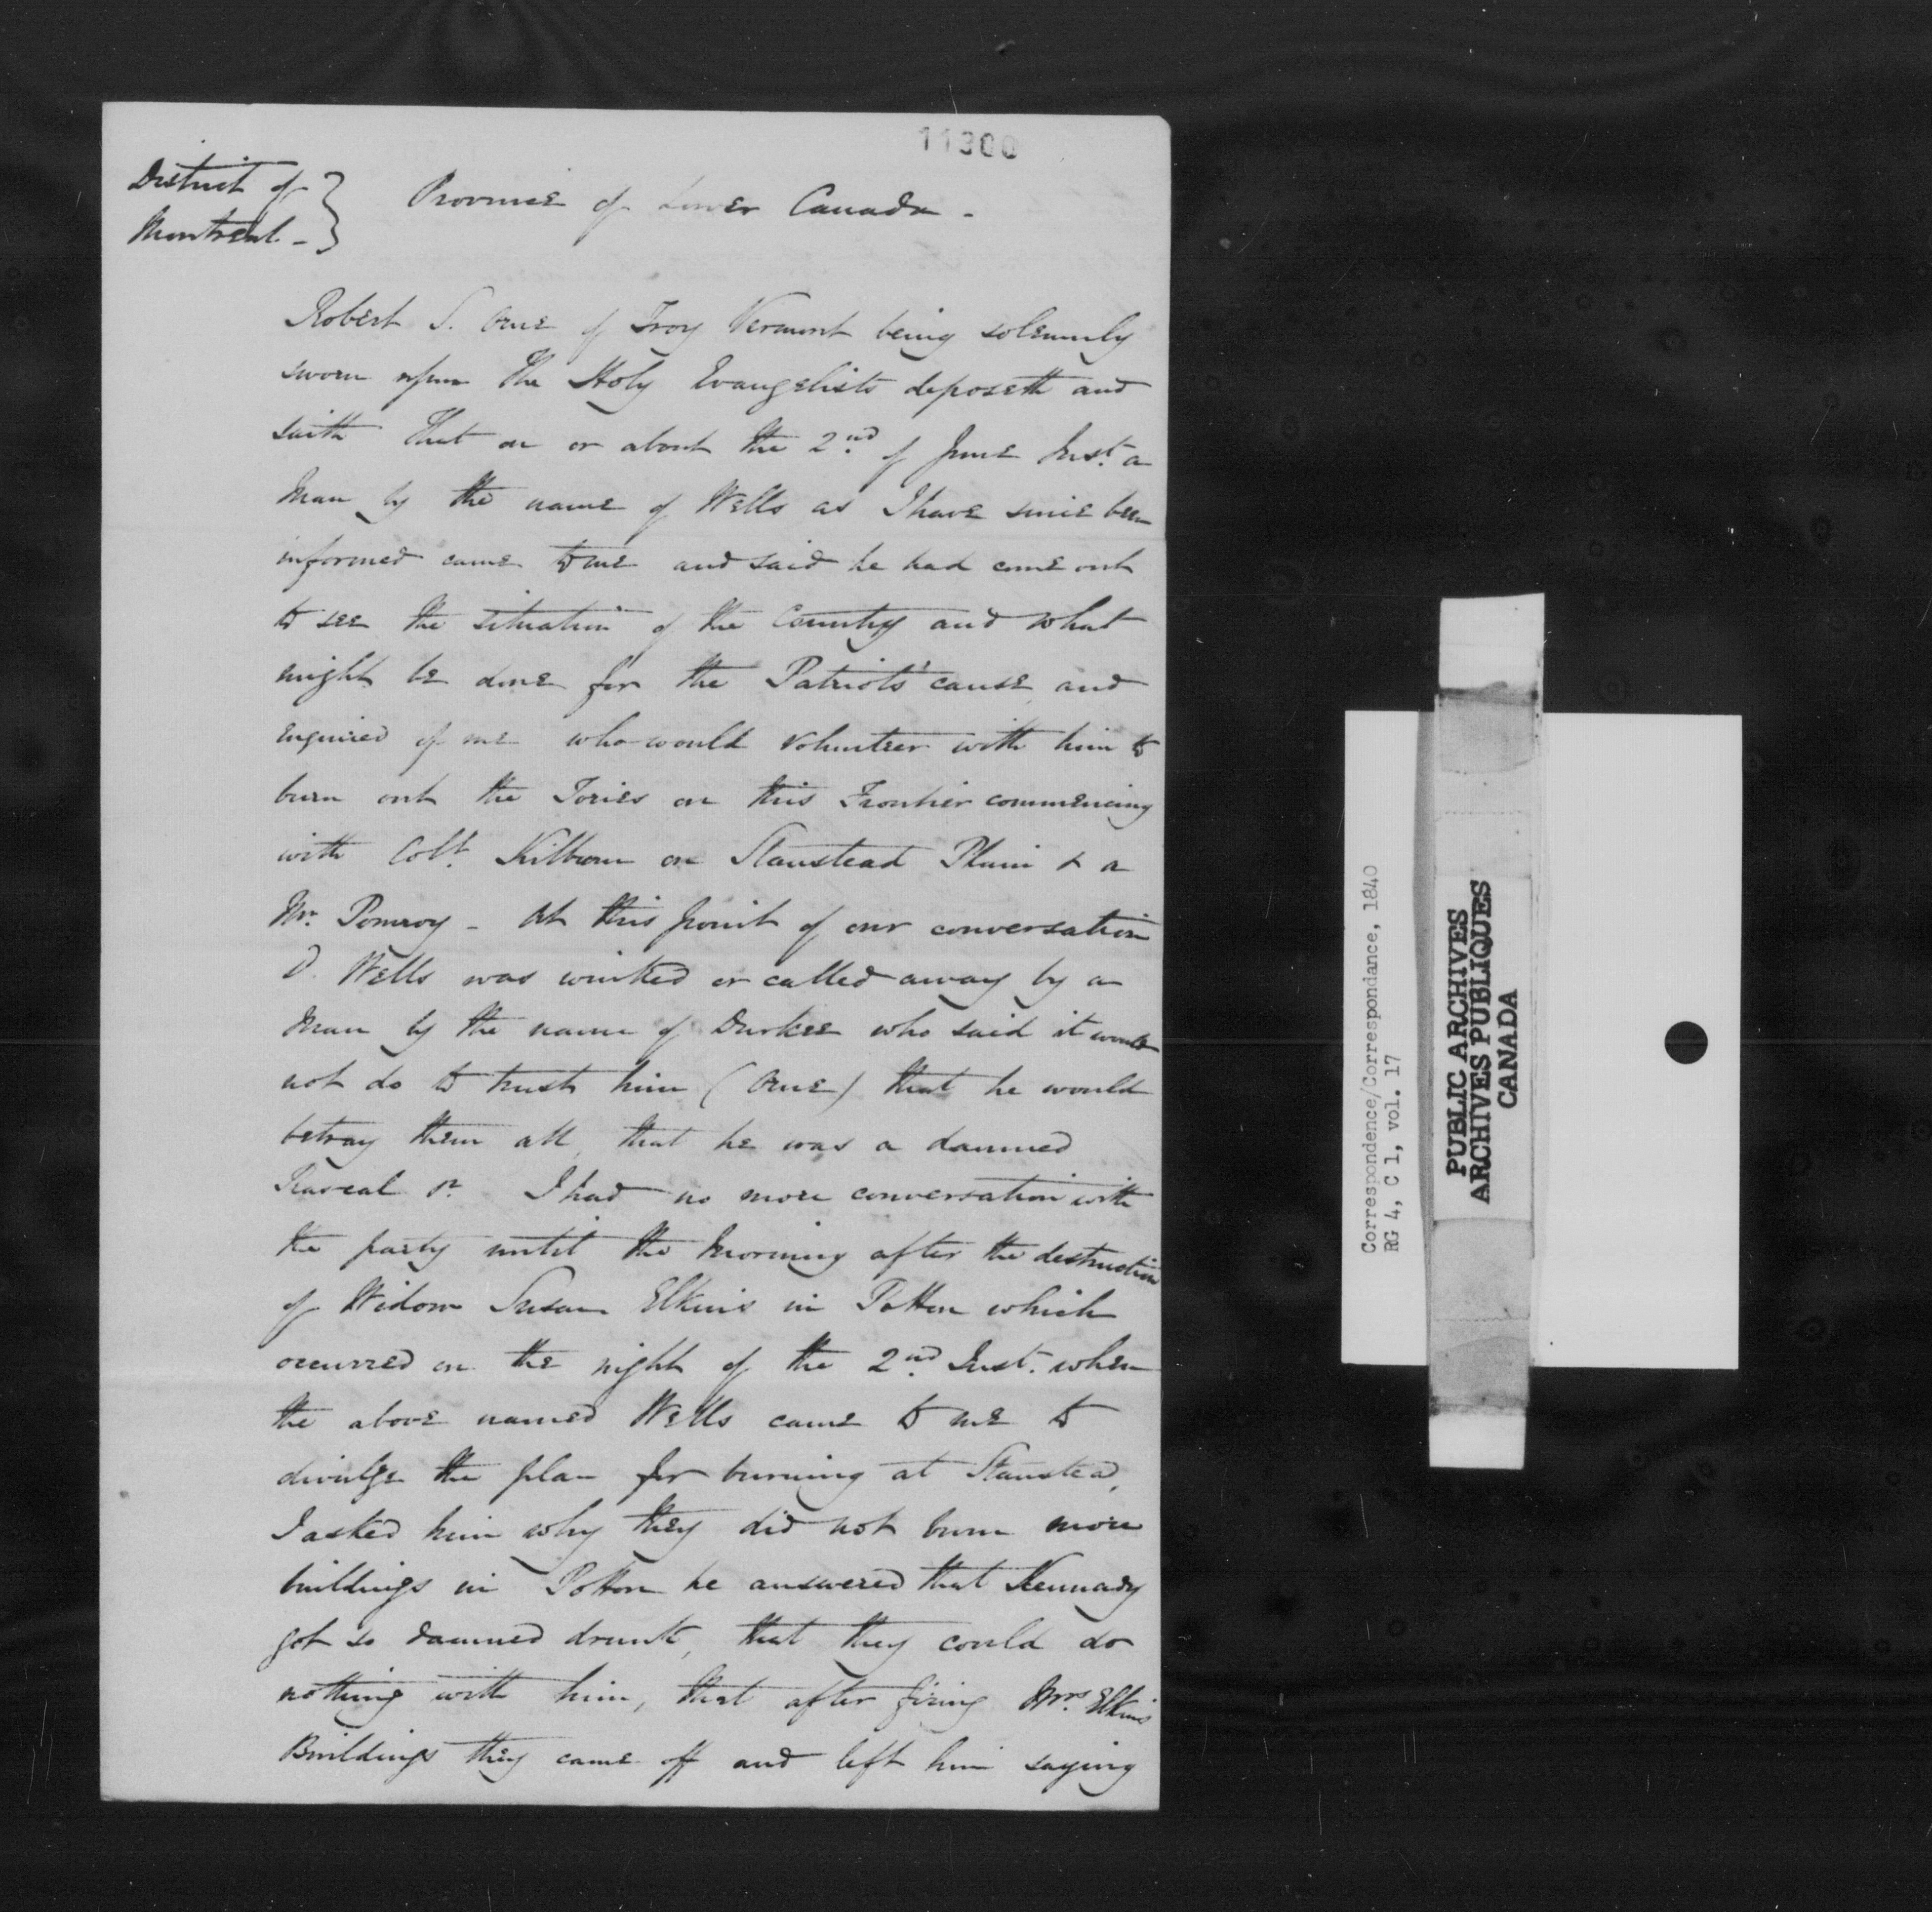 11300
District of
Montreal -
Province of Lower Canada -
Robert S. Orne of Troy Vermont being solemnly
sworn upon the Holy Evangelists deposeth and
saith That on or about the 2nd of June Inst. a
Man by the name of Wells as I have since been
informed came to me and said he had come out
to see the situation of the Country and what
might be done for the Patriots' cause, and
enquired of me who would volunteer with him to
burn out the Tories on this Frontier commencing
with Coll. Kilburn on Stanstead Plain & a
Mr. Pomroy - At this point of our conversation
D. Wells was winked or called away by a
Man by the name of Durkee who said it would
not do to trust him (Orne) that he would
betray them all, that he was a damned
Rascal &c. I had no more conversation with
the party until the morning after the destruction
of Widow Susan Elkins in Potton which
occurred on the night of the 2nd Inst. when
the above named Wells came to me to
divulge the plan for burning at Stanstead,
I asked him why they did not burn more
buildings in Potton he answered that Kennady
got so damned drunk, that they could do
nothing with him, that after firing Mrs. Elkins
Buildings they came off and left him saying
Correspondence/Correspondance, 1840
RG 4, C 1, vol. 17
PUBLIC ARCHIVES
ARCHIVES PUBLIQUES
CANADA